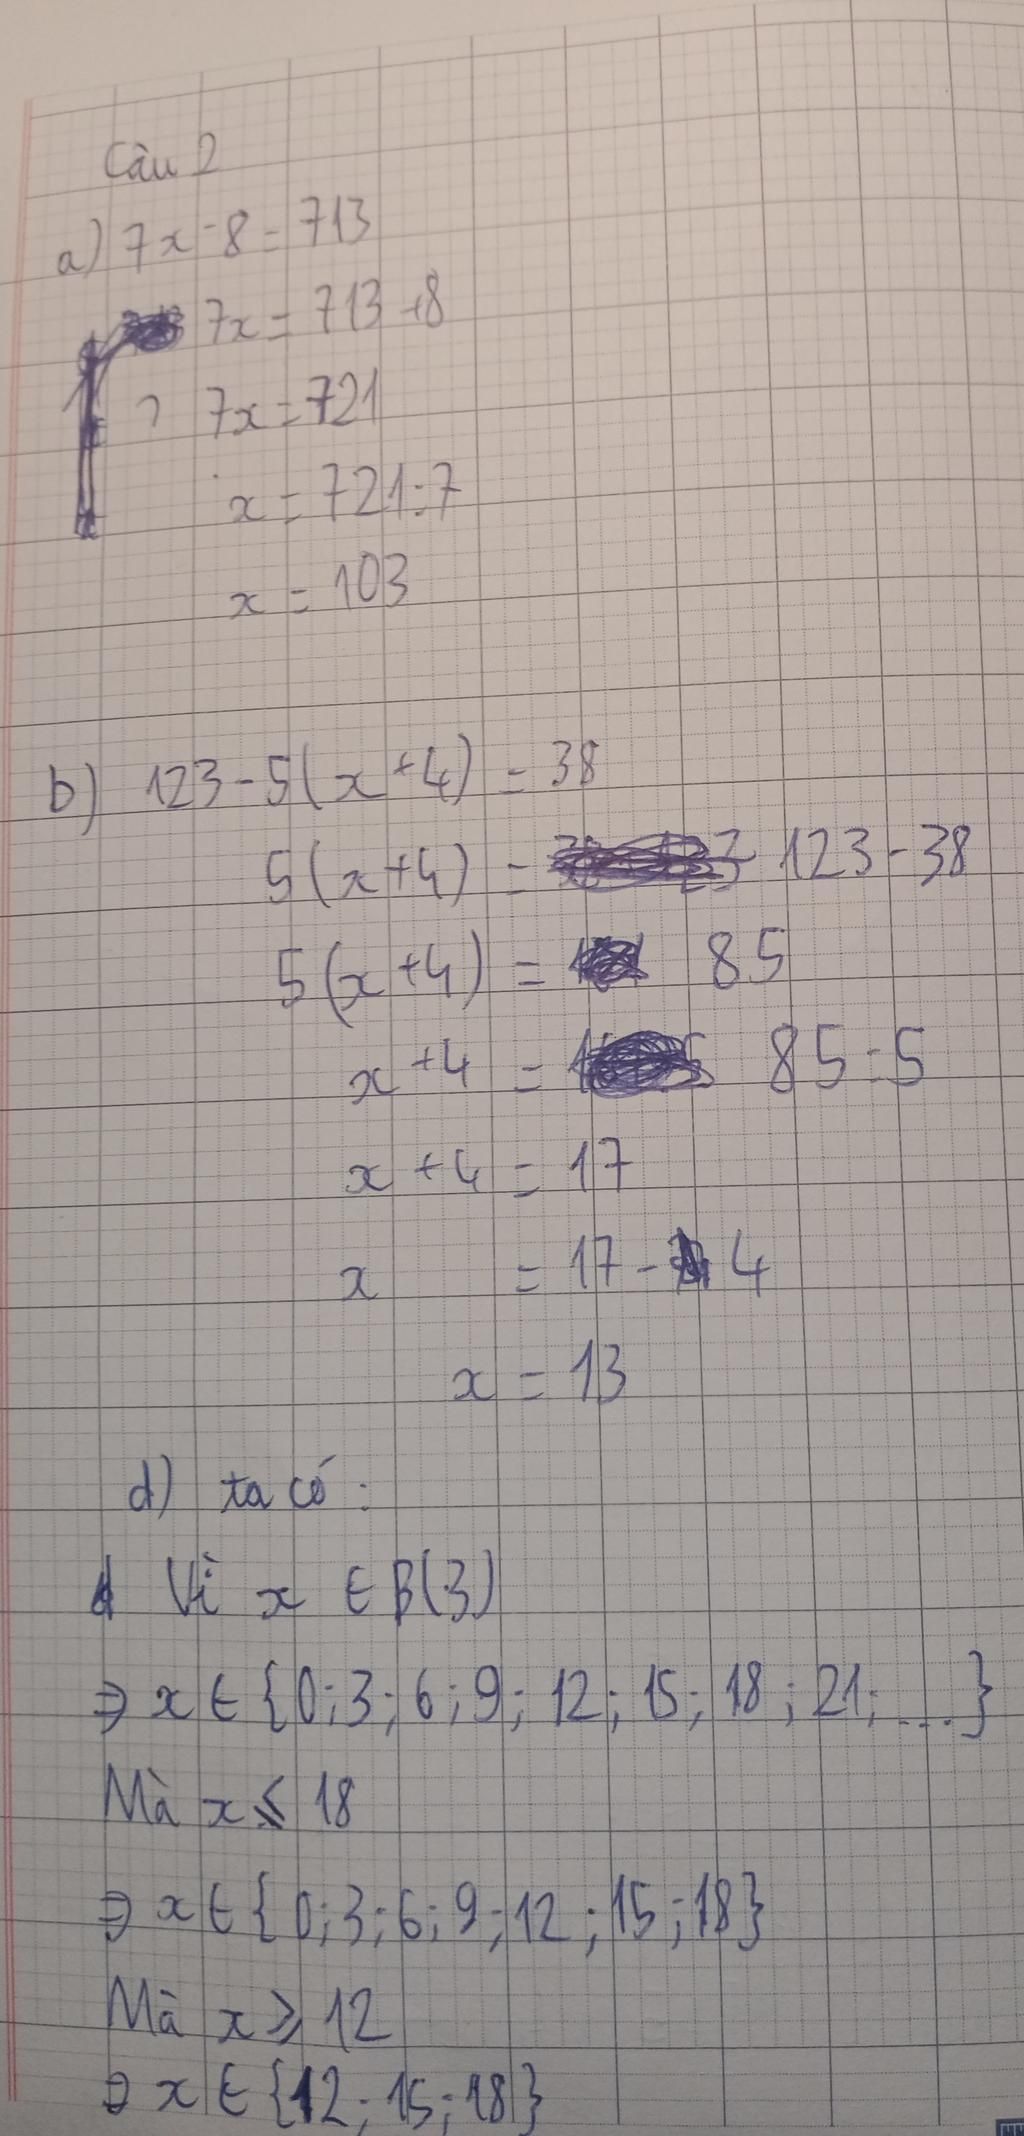 Câu 2
a) 7x - 8 = 713
7x = 713 + 8
7x = 721
x = 721 : 7
x = 103
b) 123 - 5(x + 4) = 38
5(x + 4) = 123 - 38
5(x + 4) = 85
x + 4 = 85 : 5
x + 4 = 17
x = 17 - 4
x = 13
d) ta có :
Vì x ∈ B(3)
⇒ x ∈ {0; 3; 6; 9; 12; 15; 18; 21; ...}
Mà x ⩽ 18
⇒ x ∈ {0; 3; 6; 9; 12; 15; 18}
Mà x ⩾ 12
⇒ x ∈ {12; 15; 18}